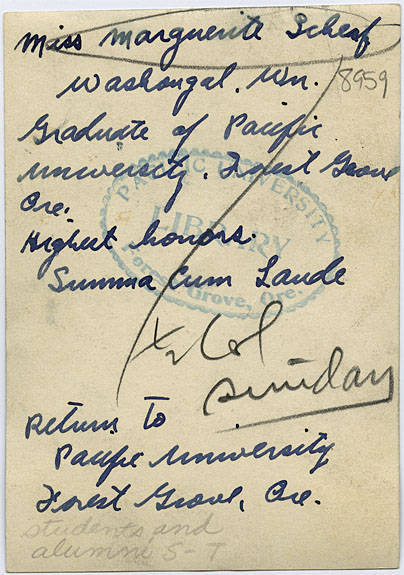 Miss Marguerite Scherf
Washougal, Wn.
8959
Graduate of Pacific
University, Forest Grove
Ore.
PACIFIC UNIVERSITY
LIBRARY
Forest Grove, Ore.
Highest honors.
Summa Cum Laude
½ Col
Sunday
Return to
Pacific University
Forest Grove, Ore.
students and
alumni S-T